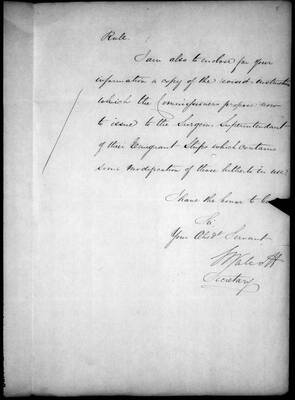 Rule.
I am also to enclose for your
information a copy of the revised instructions
which the Commissioners propose now
to issue to the Surgeon Superintendents
of their Emigrant Ships which contains
some modification of those hitherto in use.
I have the honor to be
Sir
Your Obedt. Servant
S Walcott
Secretary